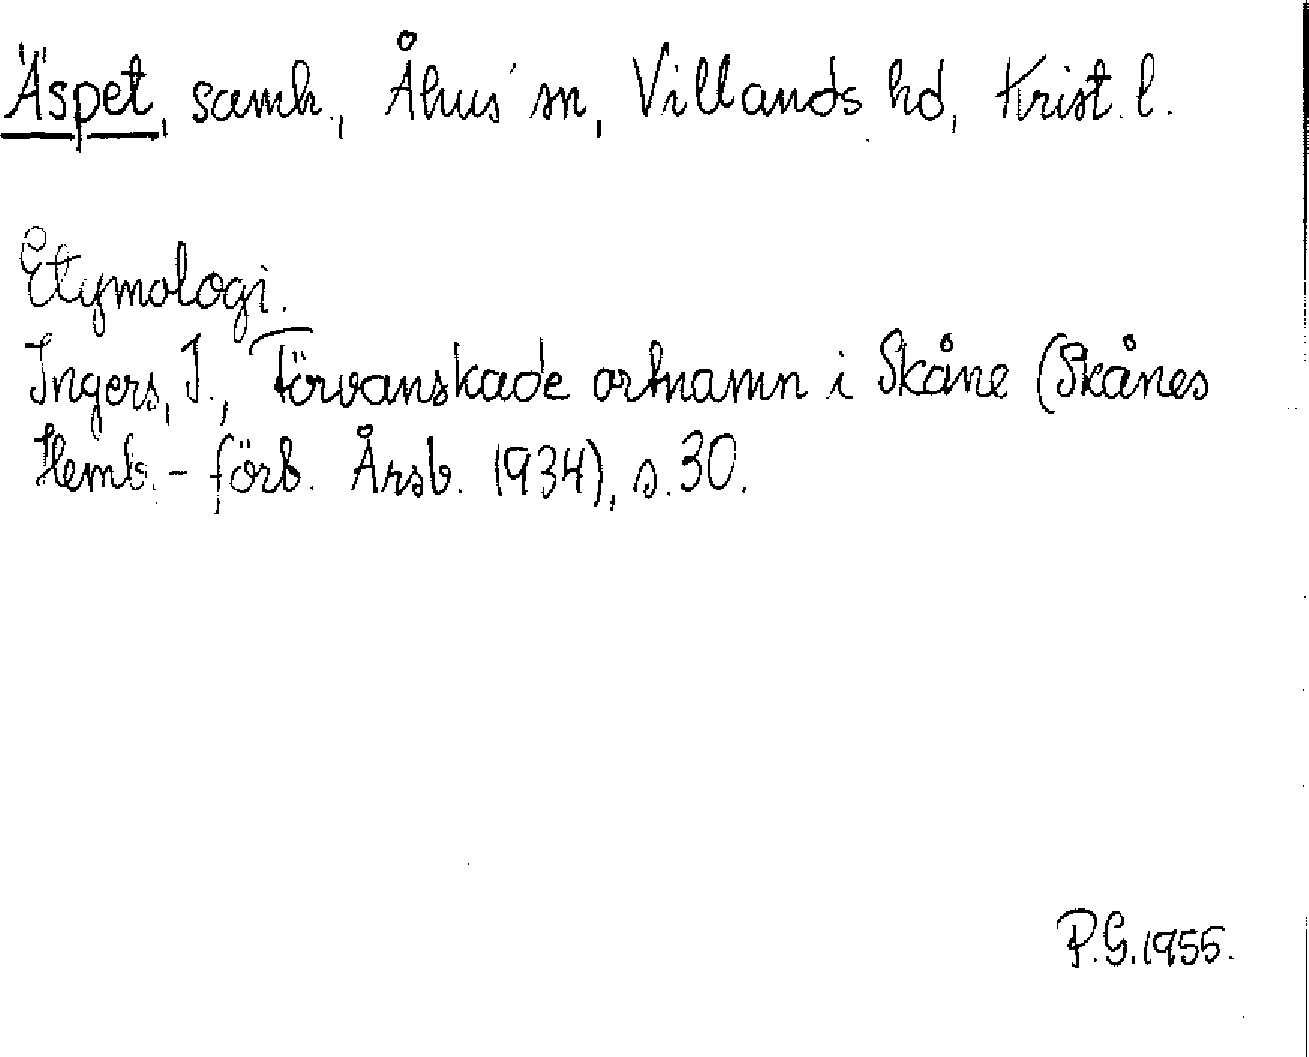 Äspet, samh., Åhus' sn, Villands hd, Krist. l.
Etymologi.
Ingers, I., Förvanskade ortnamn i Skåne (Skånes
Hemb.-förb. Årsb. 1934), s. 30.
P.G. 1955.